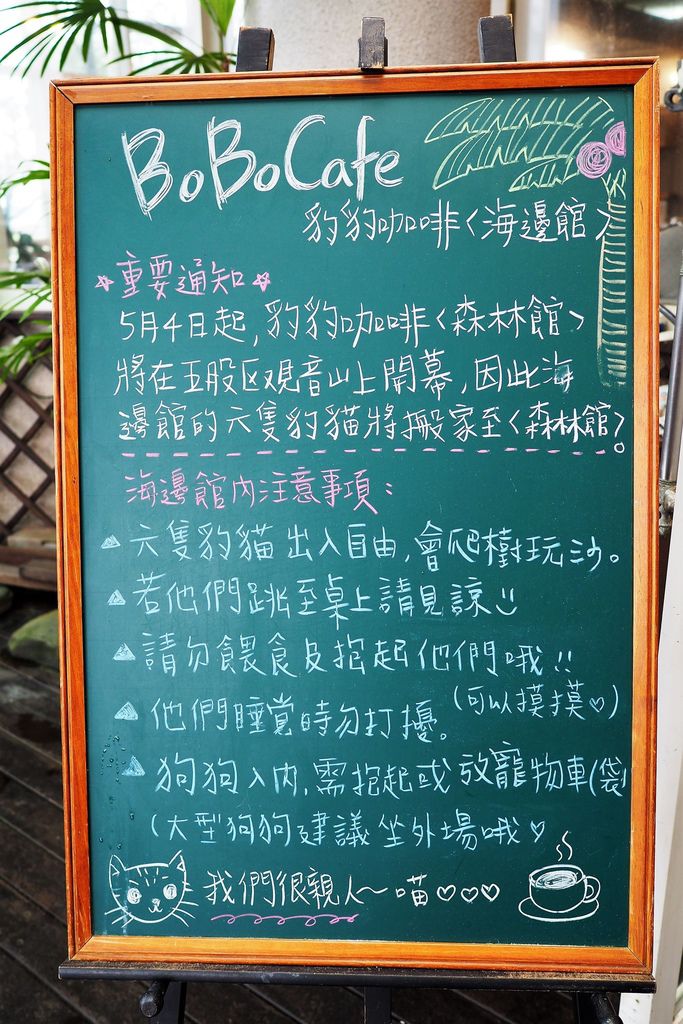 BoBoCafe
豹豹咖啡〈海邊館〉
☆重要通知☆
5月4日起,豹豹咖啡〈森林館〉
將在五股区观音山上開幕,因此海
邊館的六隻豹貓將搬家至〈森林館〉。
海邊館內注意事項:
▲六隻豹貓出入自由,會爬樹玩沙。
▲若他們跳至桌上請見諒
▲請勿餵食及抱起他們哦!!
(可以摸摸♡)
▲他們睡覚時勿打擾。
▲狗狗入內,需抱起或放寵物車(袋)
(大型狗狗建議坐外場哦♡
我們很親人~喵♡♡♡